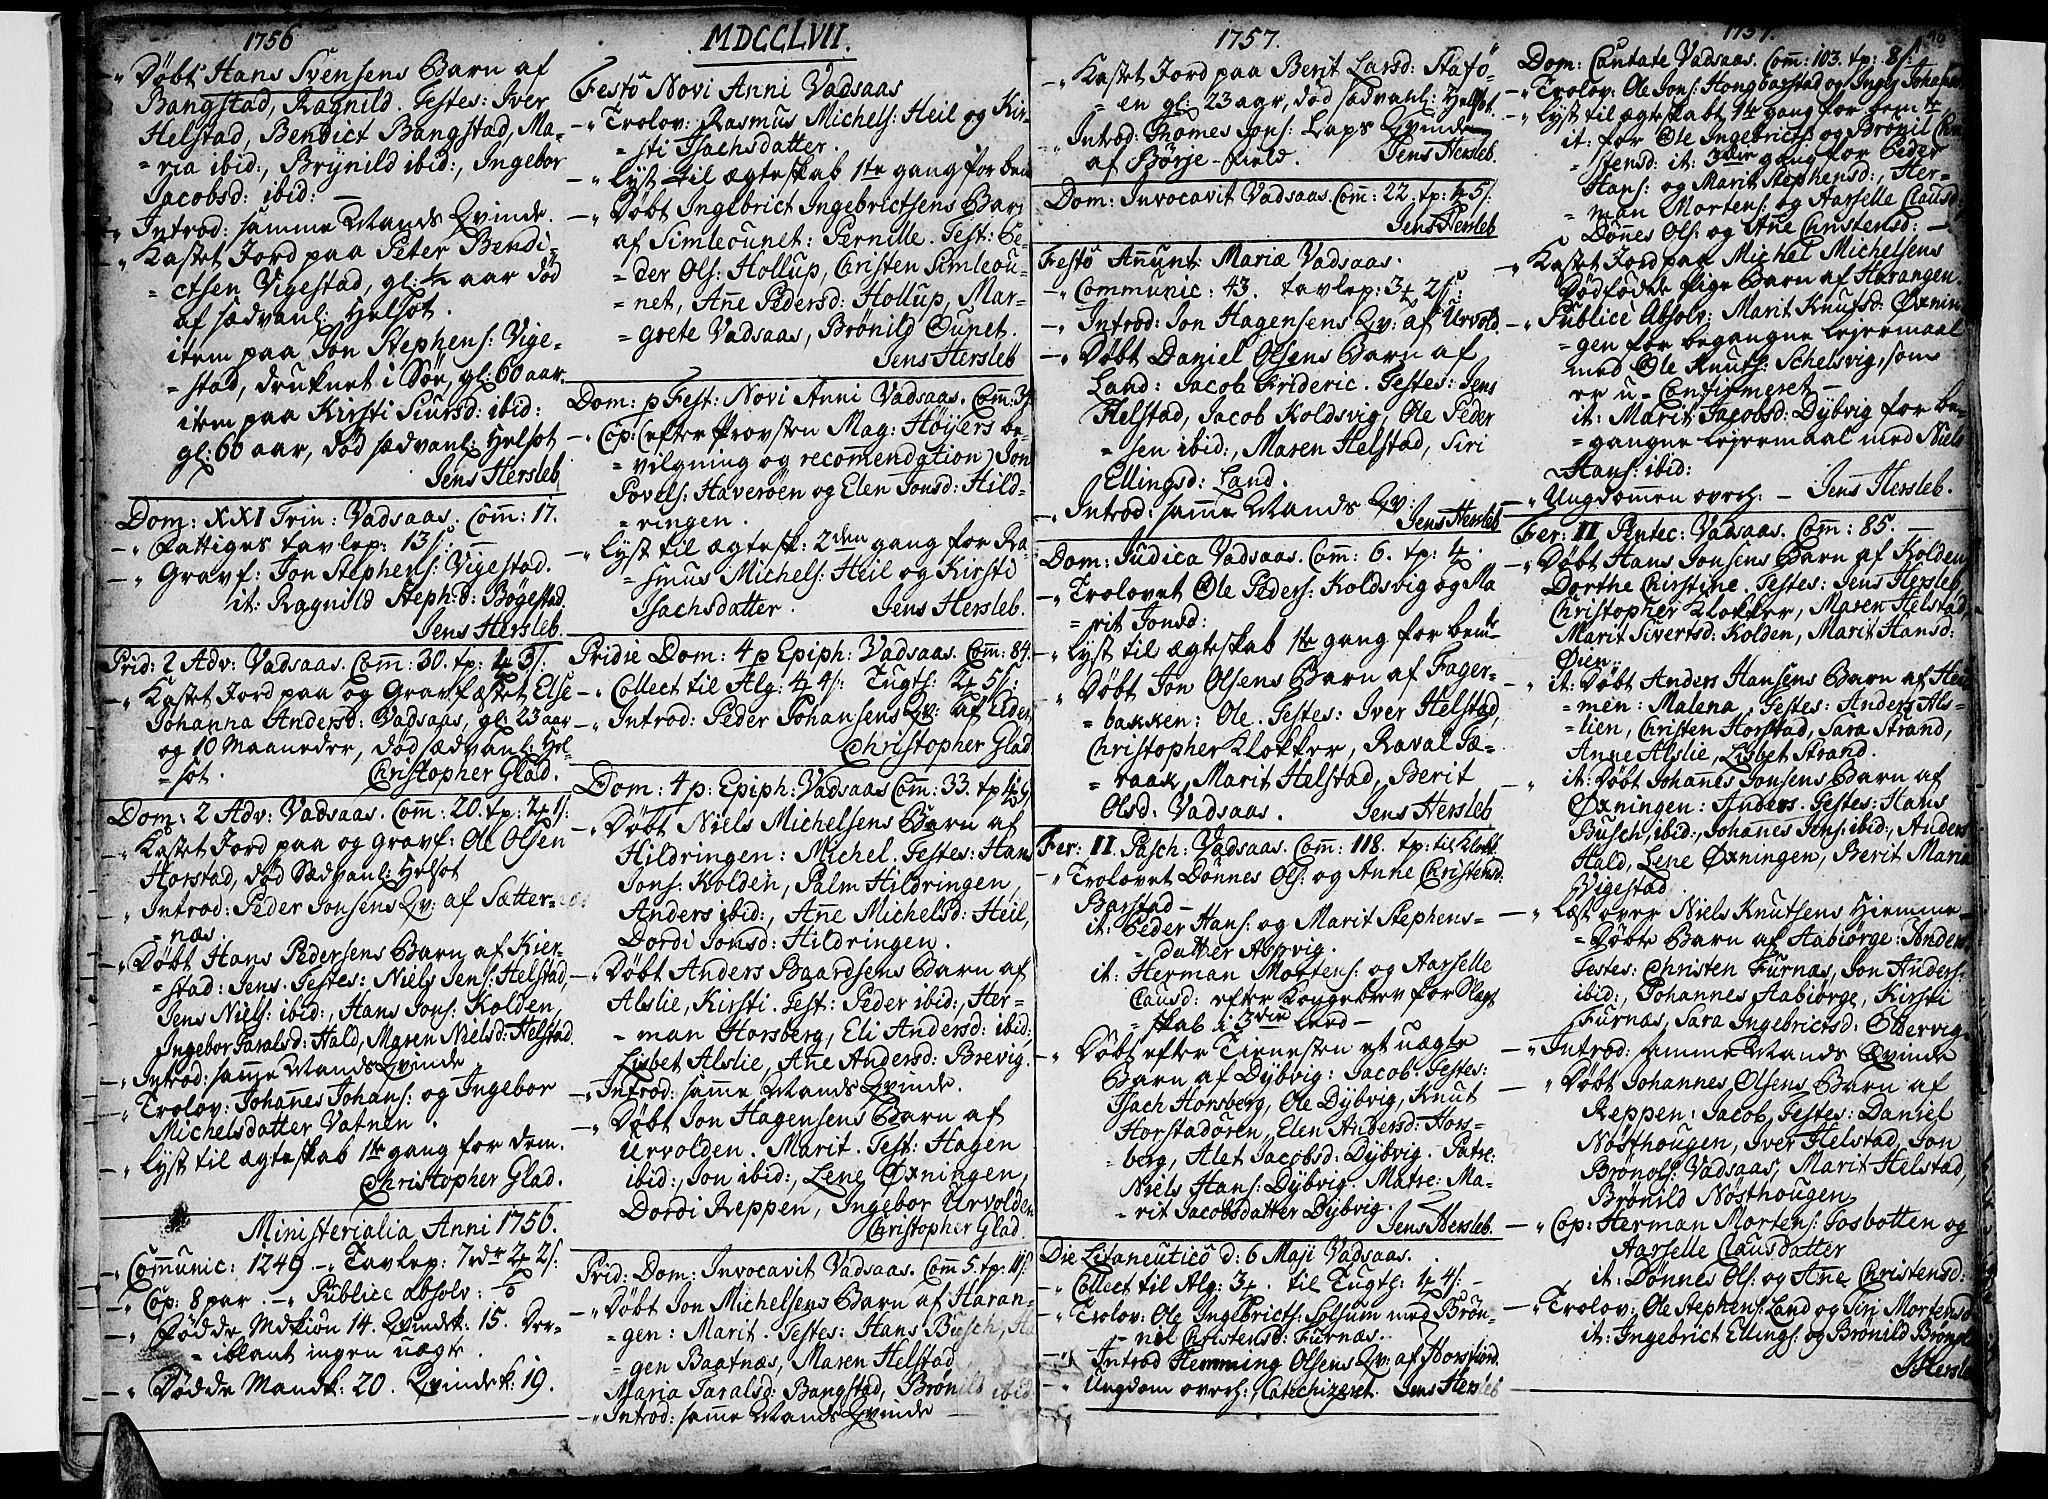 1756
" Døbt Hans Svensens Barn af
Bangstad, Ragnild. Testes: Iver
Helstad, Bendict Bangstad, Ma-
= ria ibid:, Brÿnild ibid:, Ingebor
Jacobsd: ibid: —
" Introd: samme Mands Qvinde.
" Kastet Jord paa Peter Bendi-
= ctsen Vigestad, gl: ½ aar død
af sædvanl: Helsot.
item paa Jon Stephens: Vige-
= stad, druknet i Søe, gl: 60 aar.
item paa Kirsti Siursd: ibid:
gl: 60 aar, død sædvanl: Helsot
Jens Hersleb
Dom: XXI Trin: Vadsaas. Com̄: 17.
" Fattiges tavlep: 13 s: —
" Gravf: Jon Stephens: Vigestad.
it: Ragnild Steph:d: Bøgestad.
Jens Hersleb.
Prid: 2 Adv: Vadsaas. Com̄: 30. tp: 1 3 s:
" Kastet Jord paa og Gravfæstet Else
Johanna Andersd: Vadsaas, gl: 23 aar
og 10 Maaneder, død sædvanl: Hel-
= sot. Christopher Glad.
Dom: 2 Adv: Vadsaas. Com̄: 20. tp: 2 1 s:
" Kastet Jord paa og gravf: Ole Olsen
Horstad, død Sædvanl: Helsot
" Introd: Peder Jonsens Qv: af Sætter-
= næs.
" Døbt Hans Pedersens Barn af Kier-
= stad: Jens. Testes: Niels Jens: Helstad,
Jens Niels: ibid:, Hans Jons: Kolden,
Ingebor Taralsd: Hald, Maren Nielsd: Helstad.
" Introd: sam̄e Mands Qvinde
" Trolov: Johan̄es Johans: og Ingebor
Michelsdatter Vatnen.
" Lyst til ægteskab 1te gang for dem.
Christopher Glad.
Ministerialia Anni 1756.
" Com̄unic: 1249 — " Tavlep: 7 rdr 2 2 s:
" Cop: 8 par. — " Publice absolv: 1/6
" Fødde Mdkiøn 14. Qvindek: 15. Der-
= iblant ingen uægte.
" Dødde Mandk: 20. Qvindek: 19.
MDCCLVII.
Festō Novi Anni Vadsaas
" Trolov: Rasmus Michels: Heil og Kir-
= sti Isachsdatter.
" Lyst til ægteskab 1te gang for bem
" Døbt Ingebrict Ingebrictsens Barn
af Simleounet: Pernille. Test: Pe-
= der Ols: Hollup, Christen Simleou-
= net, An̄e Pedersd: Hollup, Mar-
= grete Vadsaas, Brönild Ounet.
Jens Hersleb
Dom: p Fest: Novi Anni Vadsaas. Com̄:
" Cop: (efter Provsten Mag: Høÿers be-
= vilgning og recom̄endation) Jon
Povels: Haverøen og Elen Jonsd: Hild-
= ringen.
" Lyst til ægtesk: 2den gang for Ra-
= smus Michels: Heil og Kirsti
Isachsdatter. Jens Hersleb.
Pridie Dom: 4 p Epiph: Vadsaas. Com̄: 84.
" Collect til Alg: 4 4 s: Tugts: 2 5 s:
" Introd: Peder Johansens Qv: af Eiden
Christopher Glad
Dom: 4 p: Epiph: Vadsaas Com̄: 33. tp
" Døbt Niels Michelsens Barn af
Hildringen: Michel. Testes: Hans
Jons: Kolden, Palm Hildringen,
Anders ibid:, An̄e Michelsd: Heil,
Dordi Jonsd: Hildringen.
" Døbt Anders Baardsens Barn af
Alslie, Kirsti. Test: Peder ibid:, Her-
= man Horsberg, Eli Andersd: ibid:
Lisbet Alslie, An̄e Andersd: Brevig.
" Introd: sam̄e Mands Qvinde.
" Døbt Jon Hagensens Barn af
Urvolden. Marit. Test: Hagen
ibid:, Jon ibid:, Lene Øxningen,
Dordi Reppen, Ingebor Urvolden
Christopher Glad.
Prid: Dom: Invocavit Vadsaas. Com̄ 5. tp: 11 s:
" Døbt Jon Michelsens Barn af Haran-
= gen: Marit. Testes: Hans Busch, Ha
= gen Baatnæs, Maren Helstad
Maria Taralsd: Bangstad, Brönild ibid
" Introd: sam̄e Mands Qvinde —
1757.
" Kastet Jord paa Berit Larsd: Stafø-
= en gl: 23 aar, død sædvanl: Helsot.
" Introd: Thomes Jons: Laps Qvinde
af Børje-field. Jens Hersleb.
Dom: Invocavit Vadsaas. Com̄: 22. tp: 4 5 s:
Jens Hersleb
Festō An̄unt: Mariæ Vadsaas.
" Communic: 43. tavlep: 3 2 s:
" Introd: Jon Hagensens Qv: af Urvold
" Døbt Daniel Olsens Barn af
Land: Jacob Frideric. Testes: Jens
Helstad, Jacob Koldsvig, Ole Peder
= sen ibid:, Maren Helstad, Siri
Ellingsd: Land.
" Introd: sam̄e Mands Qv: Jens Hersleb
Dom: Judica Vadsaas. Com̄: 6. tp: 4.
" Trolovet Ole Peders: Koldsvig og Ma
= rit Jonsd:
" Lyst til ægteskab 1te gang for bemte
" Døbt Jon Olsens Barn af Fager-
= bakken: Ole. Testes: Iver Helstad,
Christopher Klokker, Raval Tæ-
= raak, Marit Helstad, Berit
Olsd: Vadsaas. Jens Hersleb
Fer: II. Pasch: Vadsaas. Com̄: 118. tp: til Klokk
" Trolovet Dønnes Ols: og Anne Christensd:
Barstad —
it: Peder Hans: og Marit Stephens-
= datter Aspvig.
it: Herman Mortens: og Aarselle
Clausd: efter Kongebrev for Slegt
= skab i 3die leed —
" Døbt efter Tienesten et uægte
Barn af Dÿbvig: Jacob: Testes:
Isach Horsberg, Ole Dÿbvig, Knut
Horstadøren, Elen Andersd: Hors-
= berg, Alet Jacobsd: Dÿbvig. Patre:
Niels Hans: Dÿbvig. Matre: Ma-
= rit Jacobsdatter Dÿbvig.
Jens Hersleb.
Die Litaneuticō d: 6 Maji Vadsaas.
" Collect til Alg: 3. til Tugts: 1 4 s: —
" Trolov: Ole Ingebricts: Solsum med Brøn-
= nel Christensd: Furnæs.
" Introd Flemming Olsens Qv: af Horsfiord.
" Ungdom overh: Catechizeret. Jens Hersleb
1757.
Dom: Cantate Vadsaas. Com̄: 103. tp: 8 s:
" Trolov: Ole Jons: Hongbarstad og Ingeb: Johansd
" Lyst til ægteskabt 1te gang for bemte
it: for Ole Ingebricts: og Brönil Chri
= stensd: it: 3die gang for Peder
Hans: og Marit Stephensd:, Her-
= man Mortens: og Aarselle Clausd:
Dönnes Ols: og Ane Christensd: —
" Kastet Jord paa Michel Michelsens
Dødfødde Pige Barn af Harangen.
" Publice Absolv: Marit Knutsd: Øxnin
= gen for begangne lejermaal
med Ole Knuts: Schelsvig, som
er u-Confirmeret —
it: Marit Jacobsd: Dÿbvig for be-
= gangne lejermaal med Niels
Hans: ibid:
" Ungdommen overh: — Jens Hersleb.
Fer: II Pentec: Vadsaas. Com̄: 85. —
" Døbt Hans Jonsens Barn af Kolden
Dorthe Christine. Testes: Jens Hersleb,
Christopher Klokker, Maren Helstad,
Marit Sivertsd: Kolden, Marit Hansd:
Øien.
" it: Døbt Anders Hansens Barn af Hei
= men: Malena. Testes: Anders Als-
= lien, Christen Horstad, Sara Strand,
Anne Alslie, Lisbet Strand.
" it: Døbt Johannes Jonsens Barn af
Øxningen: Anders. Testes: Hans
Busch, ibid:, Johannes Jens: ibid:, Anders
Hald, Lene Øxningen, Berit Maria
Vigestad.
" Læst over Niels Knutsens Hiemme-
= Døbte Barn af Aabiørge: Anders
Testes: Christen Furnæs, Jon Anders-
ibid:, Johannes Aabiørge, Kirsti
Furnæs, Sara Ingebrictsd: Ottervig.
" Introd: samme Mands Qvinde
" Døbt Johannes Olsens Barn af
Reppen: Jacob, Testes: Daniel
Nösthougen, Iver Helstad, Jon
Brönols: Vadsaas, Marit Helstad,
Brönild Nösthougen.
" Cop: Herman Mortens: Tosbotten og
Aarselle Clausdatter
it: Dønnes Ols: og An̄e Christensd:
" Trolov: Ole Stephens: Land og Siri Mortensd
it: Ingebrict Ellings: og Brönild Bröngls
J Hersleb